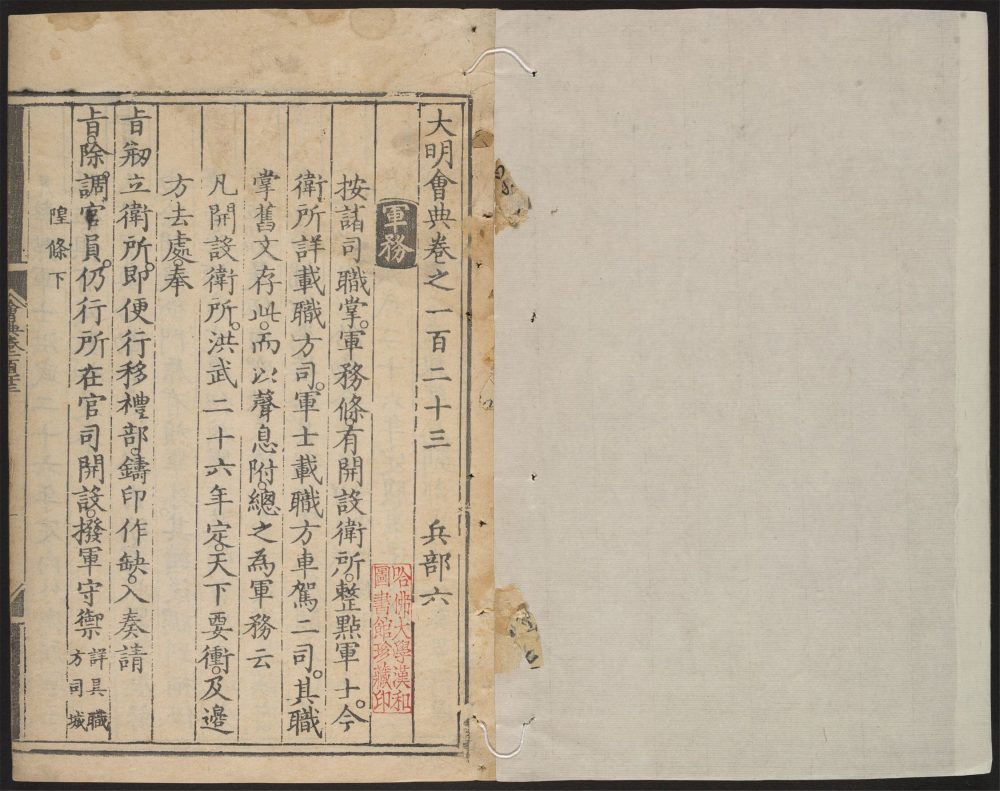 大明會典卷之一百二十三 兵部六
軍務
按諸司職掌。軍務條。有開設衛所。整點軍士。今
衛所詳載職方司。軍士載職方車駕二司。其職
掌舊文存此。而以聲息附。總之為軍務云
凡開設衛所。洪武二十六年定。天下要衝。及邊
方去處。奉
旨剏立衛所。即便行移禮部。鑄印作缺。入奏請
旨。除調官員。仍行所在官司開設。撥軍守禦 詳具職
方司城
隍條下
哈佛大學漢和
圖書館珍藏印